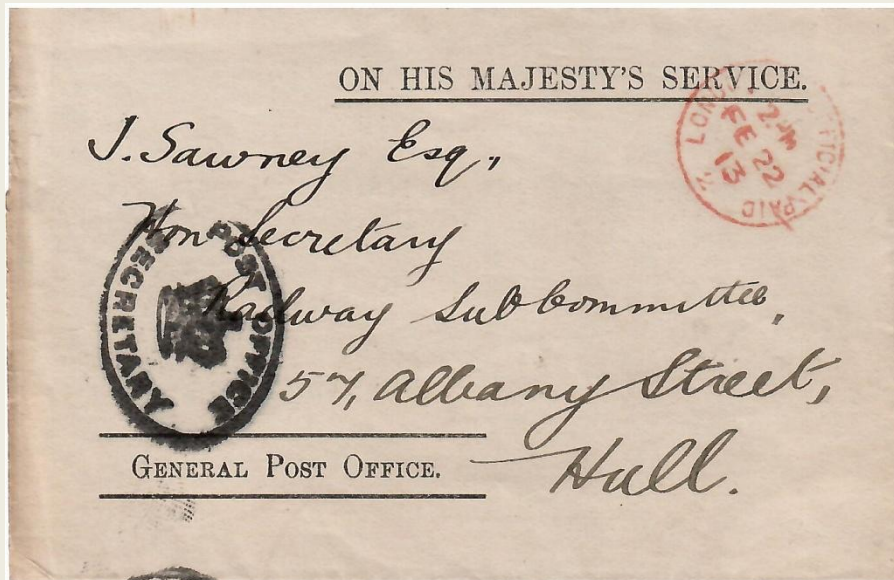 ON HIS MAJESTY'S SERVICE.
LONDON OFFICIAL PAID
2 PM
FE 22
13
J. Sawney Esq.,
Hon Secretary
Railway Subcommittee,
57, Albany Street,
Hull.
POST OFFICE
SECRETARY
GENERAL POST OFFICE.